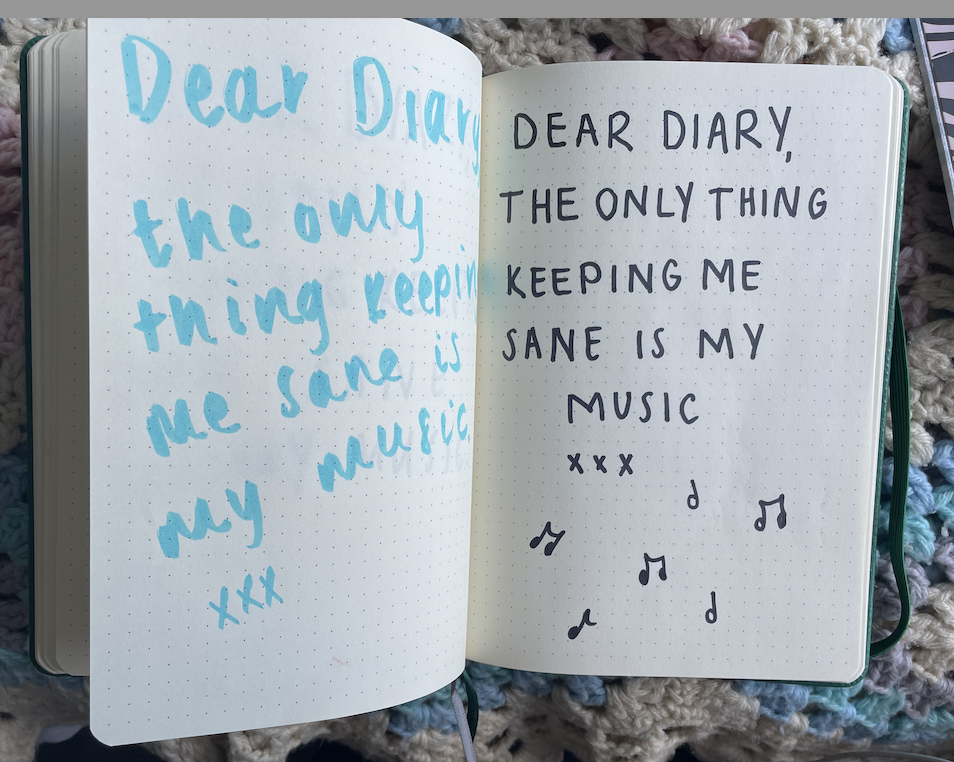 Dear Diary
the only
thing keepin
me sane is
my music.
xxx
DEAR DIARY,
THE ONLY THING
KEEPING ME
SANE IS MY
MUSIC
xxx